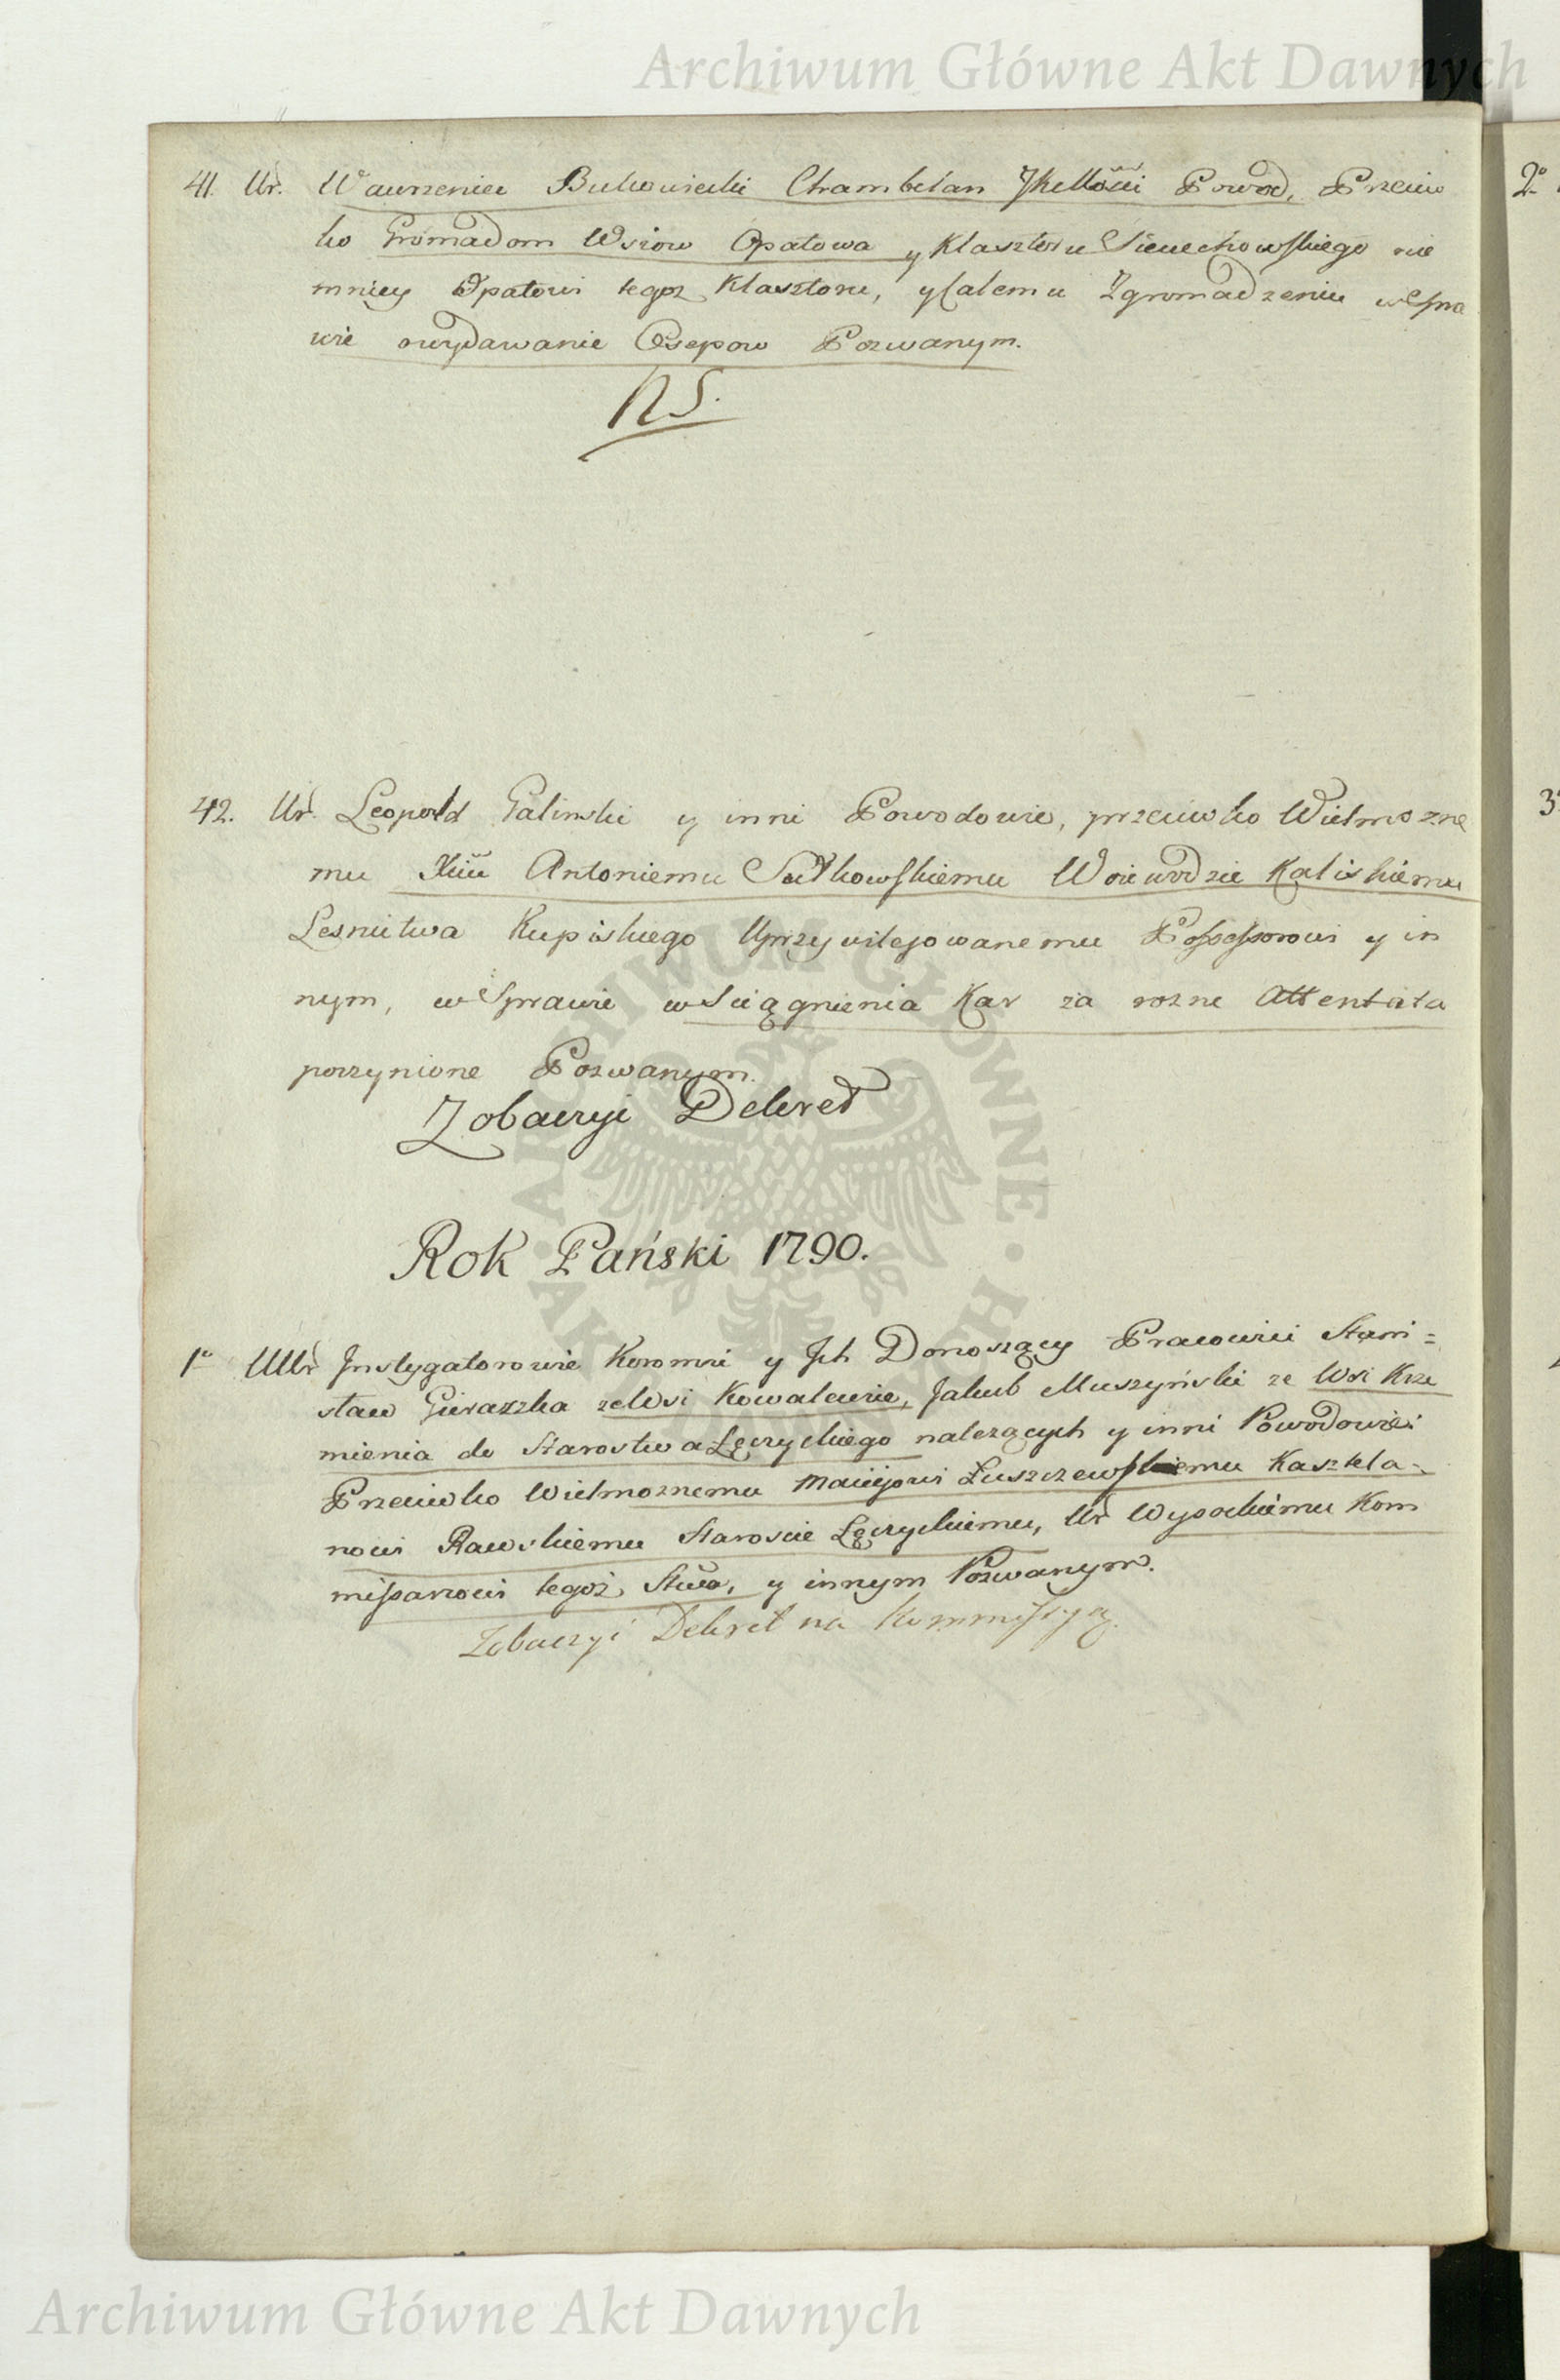 Archiwum Główne Akt Dawnych
41. Ur. Wawrzeniec Bukowiecki Chambelan JKMości Powod, Przeciw
ko Gromadom Wsiow Opatowa y Klasztoru Sieciechowskiego nie
mniey Opatowi tegoz Klasztoru, y Całemu Zgromadzeniu w Spra
wie o wydawanie Osepow Pozwanym.
NS.
42. Ur. Leopold Galinski y inni Powodowie, przeciwko Wielmozne
mu Xciu Antoniemu Sułkowskiemu Woiewodzie Kaliskiemu
Lesnictwa Kupiskiego Uprzywilejowanemu Possessorowi y in
nym, w Sprawie wsciągnienia Kar za rozne Attentata
poczynione Pozwanym.
Zobaczyi Dekret
Rok Pański 1790.
1o UUr Jnstygatorowie Koronni y Jch Donoszący Pracowici Stani=
sław Gieraszka ze Wsi Kowalewie, Jakub Muszyński ze Wsi Krze
mienia do Starostwa Łęczyckiego nalezących y inni Powodowie:
Przeciwko Wielmoznemu Maciejowi Łuszczewskiemu Kasztela-
nowi Rawskiemu Staroscie Łęczyckiemu, Ur Wysockiemu Kom
missarzowi tegoż Stwa, y innym Pozwanym.
Zobaczyi Dekret na Kommissyą.
2o
3o
ARCHIWUM GŁÓWNE AKT DAWNYCH
Archiwum Główne Akt Dawnych